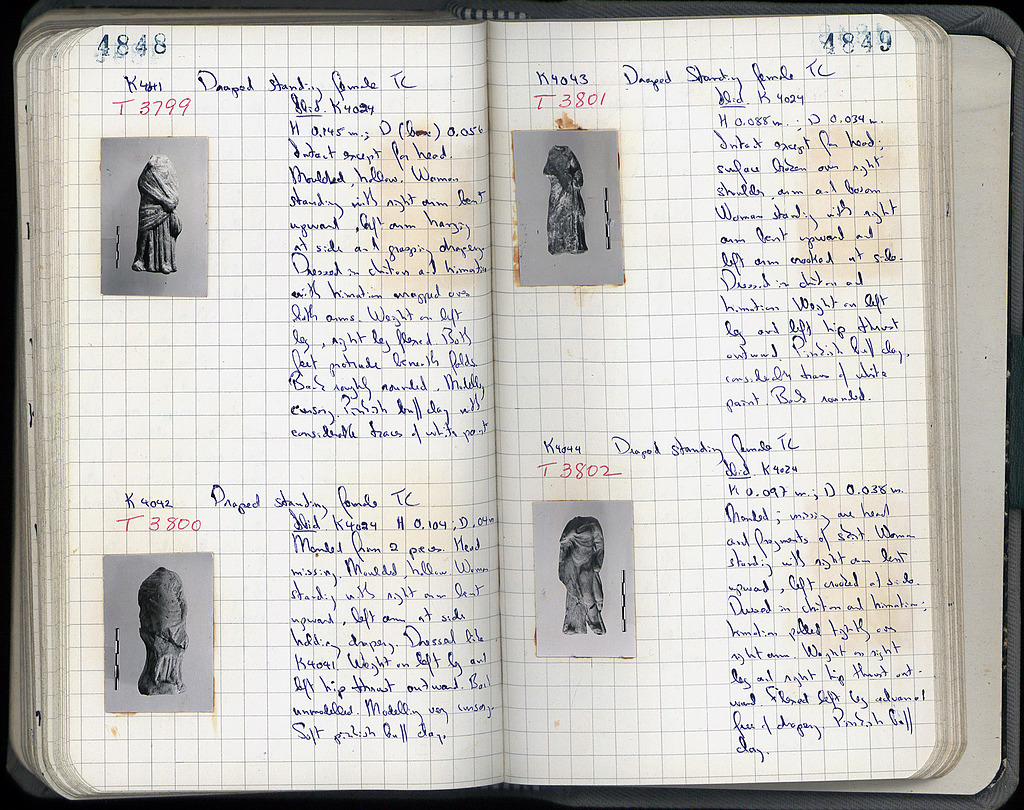 4848
K4041 Draped standing female TC
T 3799
Ibid. K4024
H 0.145 m.; D (base) 0.056
Intact except for head.
Moulded, hollow. Woman
standing with right arm bent
upward, left arm hanging
at side and grasping drapery.
Dressed in chiton and himation
with himation wrapped over
both arms. Weight on left
leg, right leg flexed. Both
feet protrude beneath folds.
Back roughly rounded. Modelling
cursory. Pinkish buff clay with
considerable traces of white paint
K4042 Draped standing female TC
T 3800
Ibid. K4024 H 0.104; D .04m
Mended from 2 pieces. Head
missing. Moulded, hollow. Woman
standing with right arm bent
upward, left arm at side
holding drapery. Dressed like
K4041. Weight on left leg and
left hip thrust outward. Back
unmodelled. Modelling very cursory.
Soft pinkish buff clay.
4849
K4043 Draped Standing female TC
T 3801
Ibid. K4024
H 0.088 m.; D 0.034 m.
Intact except for head;
surface broken over right
shoulder, arm and bosom.
Woman standing with right
arm bent upward and
left arm crooked at side.
Dressed in chiton and
himation. Weight on left
leg and left hip thrust
outward. Pinkish buff clay,
considerable traces of white
paint. Back rounded.
K4044 Draped standing female TC
T 3802
Ibid. K4024
H 0.097 m.; D 0.038 m.
Mended; missing are head
and fragments of skirt. Woman
standing with right arm bent
upward, left crooked at side.
Dressed in chiton and himation;
himation pulled tightly over
right arm. Weight on right
leg and right hip thrust out-
ward. Flexed left leg advanced
free of drapery. Pinkish buff
clay.